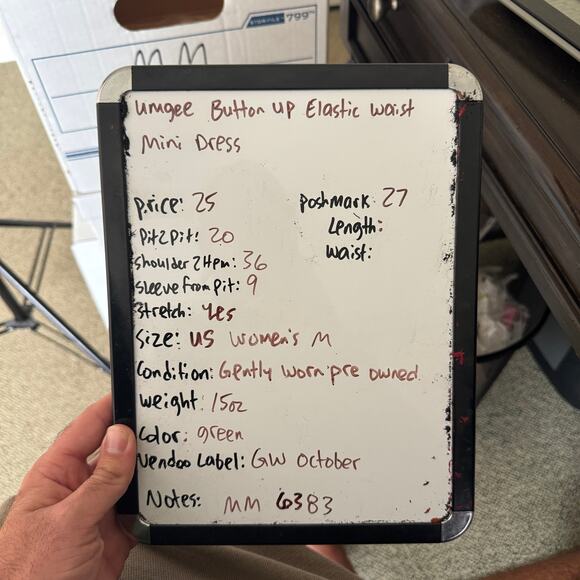 STOR/FILE™ 799
MM
Umgee Button up Elastic waist
Mini Dress
price: 25
Poshmark: 27
Pit2pit: 20
Length:
Shoulder2Hem: 36
Waist:
Sleeve from pit: 9
Stretch: Yes
Size: US Women's M
Condition: Gently worn pre owned
Weight: 15oz
Color: green
Vendoo Label: GW October
Notes: MM 6383